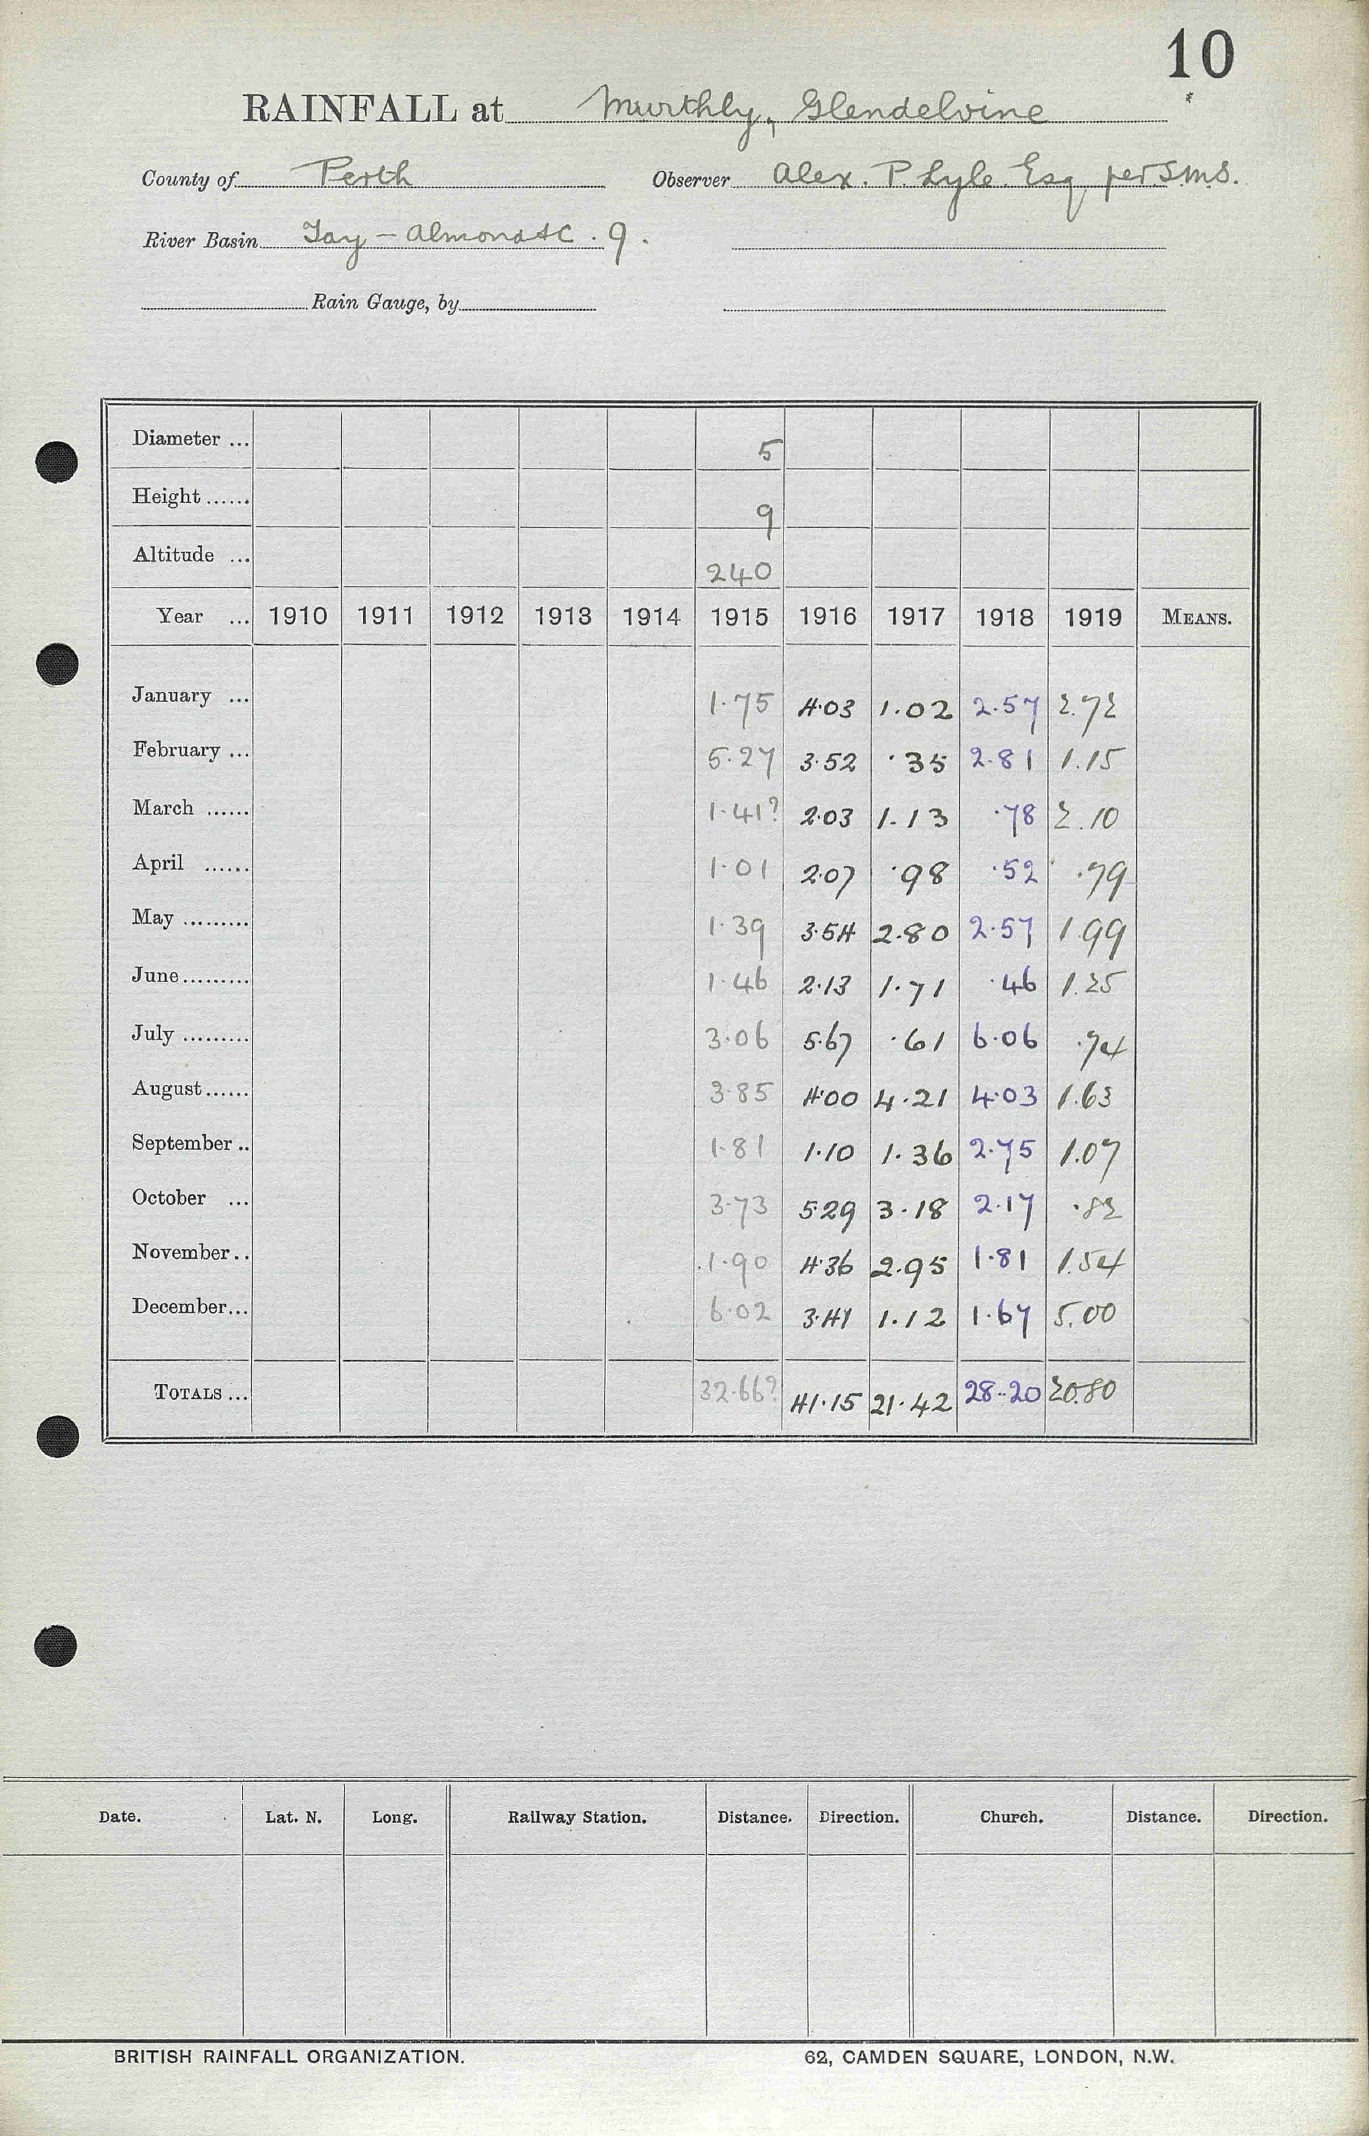 10
RAINFALL at Murthly, Glendelvine *
County of Perth Observer Alex. P. Lyle Esq per S.M.S.
River Basin Tay - Almond &c . 9 .
Rain Gauge, by
Diameter ... 5
Height ...... 9
Altitude ... 240
Year ... 1910 1911 1912 1913 1914 1915 1916 1917 1918 1919 MEANS.
January ... 1.75 4.03 1.02 2.57 2.72
February ... 5.27 3.52 .35 2.81 1.15
March ...... 1.41? 2.03 1.13 .78 2.10
April ...... 1.01 2.07 .98 .52 .79
May ......... 1.39 3.54 2.80 2.57 1.99
June ......... 1.46 2.13 1.71 .46 1.25
July ......... 3.06 5.67 .61 6.06 .74
August ...... 3.85 4.00 4.21 4.03 1.63
September .. 1.81 1.10 1.36 2.75 1.07
October ... 3.73 5.29 3.18 2.17 .82
November .. 1.90 4.36 2.95 1.81 1.54
December ... 6.02 3.41 1.12 1.67 5.00
TOTALS ... 32.66? 41.15 21.42 28.20 20.80
Date. Lat. N. Long. Railway Station. Distance. Direction. Church. Distance. Direction.
BRITISH RAINFALL ORGANIZATION. 62, CAMDEN SQUARE, LONDON, N.W.